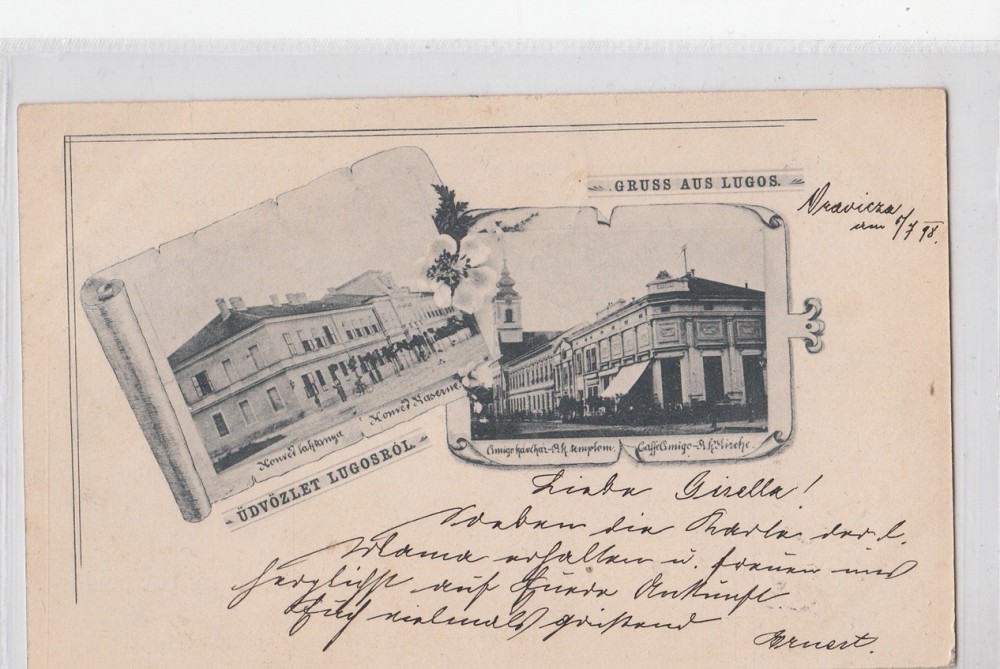 GRUSS AUS LUGOS.
Oravicza
am 5/7 98.
Honvéd laktanya Honvéd Kaserne
ÜDVÖZLET LUGOSRÓL.
Amigo kávéház-R.k. templom. Caffe Amigo-R.k. Kirche.
Liebe Gisella!
Soeben die Karte der l.
Mama erhalten u. freuen uns
herzlichst auf Euere Ankunft
Euch vielmals grüssend
Ernest.